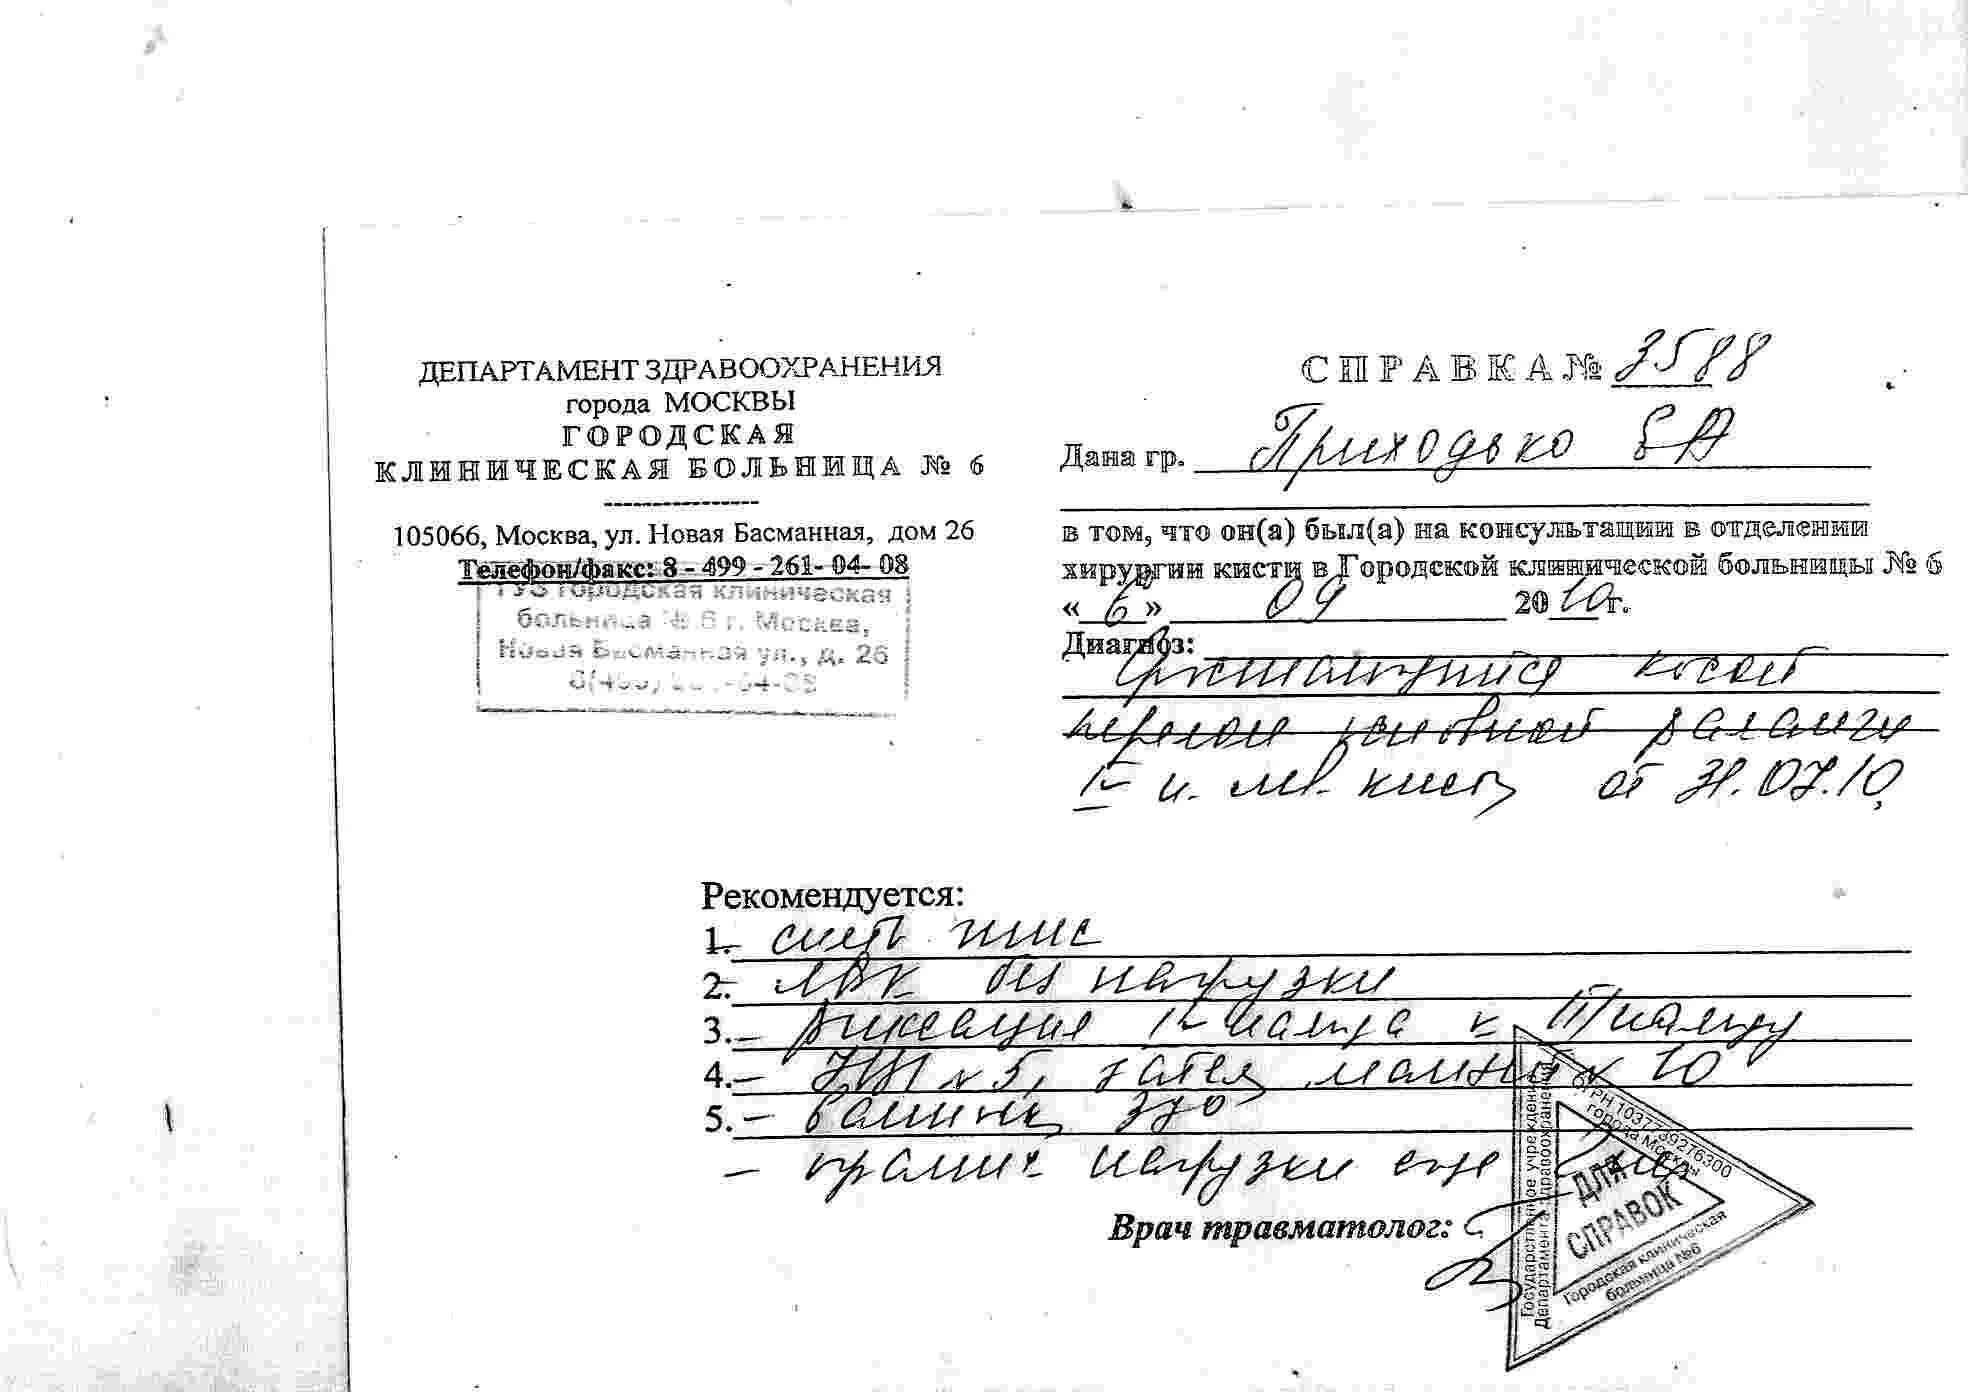 ДЕПАРТАМЕНТ ЗДРАВООХРАНЕНИЯ
города МОСКВЫ
ГОРОДСКАЯ
КЛИНИЧЕСКАЯ БОЛЬНИЦА № 6
105066, Москва, ул. Новая Басманная, дом 26
Телефон/факс: 8 - 499 - 261- 04- 08
ГУЗ Городская клиническая
больница № 6 г. Москва,
Новая Басманная ул., д. 26
СПРАВКА № 3588
Дана гр. Приходько
в том, что он(а) был(а) на консультации в отделении
хирургии кисти в Городской клинической больницы № 6
« 6 » 09 2010 г.
Диагноз:
Срастающийся косой
перелом основной фаланги
п. лев. кисти от 31.07.10
Рекомендуется:
1. снять гипс
2. ЛФК без нагрузки
3. – фиксация пальца к III пальцу
4. – № 5, затем № 10
5. – ванны 37°
– огранич. нагрузки еще
Врач травматолог:
Государственное учреждение
Департамента здравоохранения
города Москвы
ОГРН 1037739276300
ДЛЯ
СПРАВОК
Городская клиническая
больница №6